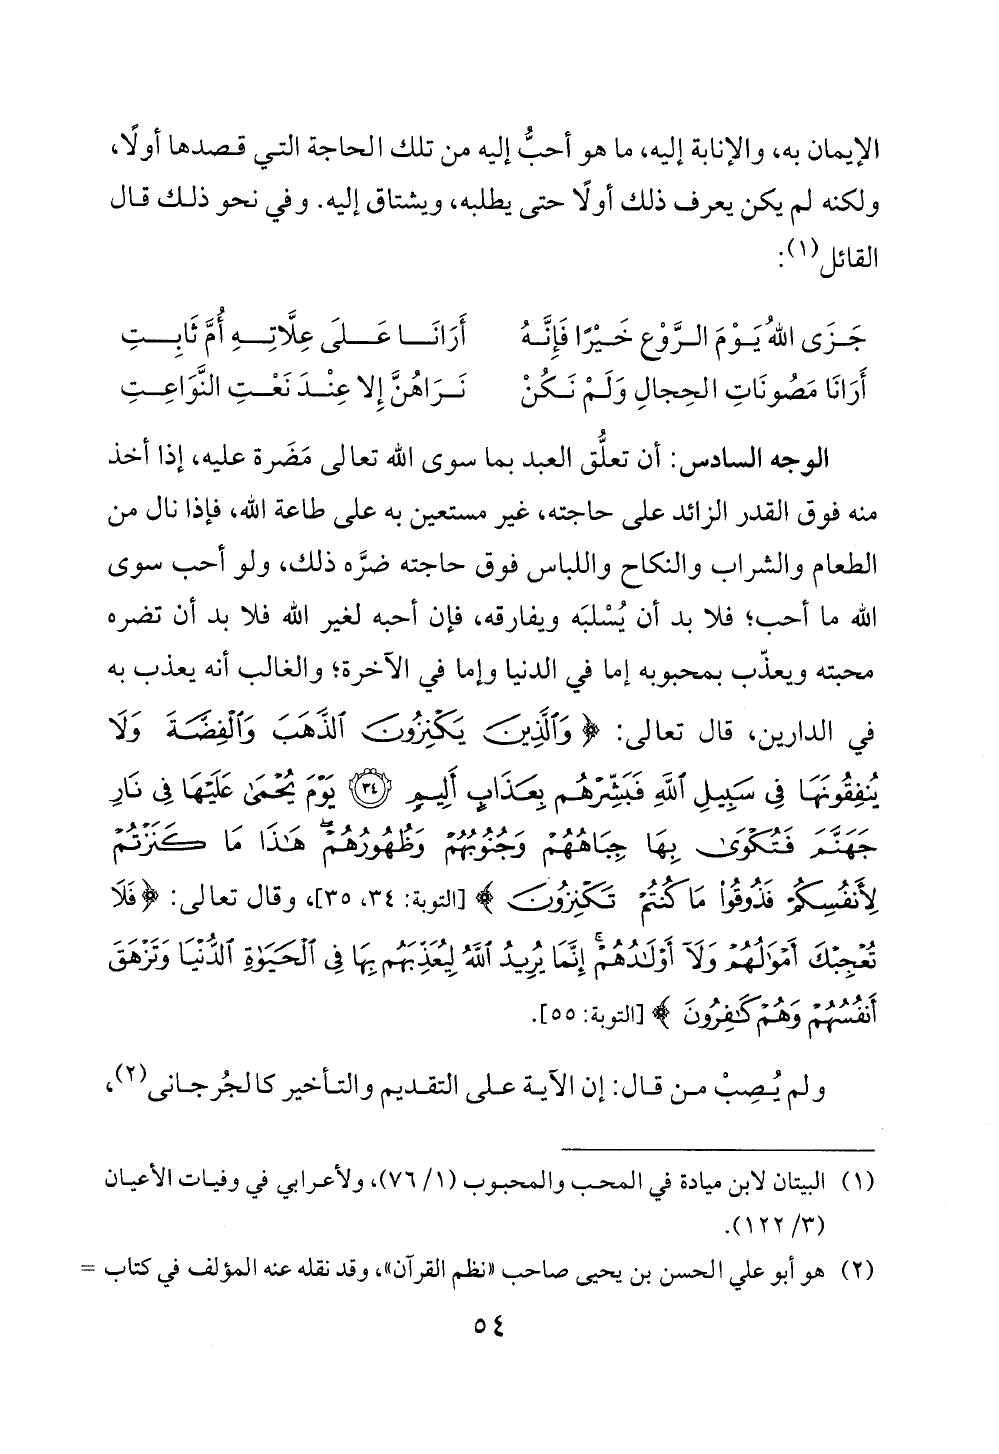 الإيمان به، والإنابة إليه، ما هو أحبُّ إليه من تلك الحاجة التي قصدها أولًا،
ولكنه لم يكن يعرف ذلك أولًا حتى يطلبه، ويشتاق إليه. وفي نحو ذلك قال
القائل(١):
جَزَى اللهُ يَوْمَ الرَّوْعِ خَيْرًا فَإِنَّهُ أَرَانَا عَلَى عِلَّاتِهِ أُمَّ ثَابِتِ
أَرَانَا مَصُونَاتِ الحِجالِ وَلَمْ نَكُنْ نَرَاهُنَّ إِلا عِنْدَ نَعْتِ النَّوَاعِتِ
الوجه السادس: أن تعلُّق العبد بما سوى الله تعالى مَضَرة عليه، إذا أخذ
منه فوق القدر الزائد على حاجته، غير مستعين به على طاعة الله، فإذا نال من
الطعام والشراب والنكاح واللباس فوق حاجته ضرَّه ذلك، ولو أحب سوى
الله ما أحب؛ فلا بد أن يُسْلبَه ويفارقه، فإن أحبه لغير الله فلا بد أن تضره
محبته ويعذّب بمحبوبه إما في الدنيا وإما في الآخرة؛ والغالب أنه يعذب به
في الدارين، قال تعالى: ﴿وَٱلَّذِينَ يَكْنِزُونَ ٱلذَّهَبَ وَٱلْفِضَّةَ وَلَا
يُنفِقُونَهَا فِى سَبِيلِ ٱللَّهِ فَبَشِّرْهُم بِعَذَابٍ أَلِيمٍ ٣٤ يَوْمَ يُحْمَىٰ عَلَيْهَا فِى نَارِ
جَهَنَّمَ فَتُكْوَىٰ بِهَا جِبَاهُهُمْ وَجُنُوبُهُمْ وَظُهُورُهُمْ ۖ هَٰذَا مَا كَنَزْتُمْ
لِأَنفُسِكُمْ فَذُوقُوا۟ مَا كُنتُمْ تَكْنِزُونَ﴾ [التوبة: ٣٤، ٣٥]، وقال تعالى: ﴿فَلَا
تُعْجِبْكَ أَمْوَٰلُهُمْ وَلَآ أَوْلَٰدُهُمْ ۚ إِنَّمَا يُرِيدُ ٱللَّهُ لِيُعَذِّبَهُم بِهَا فِى ٱلْحَيَوٰةِ ٱلدُّنْيَا وَتَزْهَقَ
أَنفُسُهُمْ وَهُمْ كَٰفِرُونَ﴾ [التوبة: ٥٥].
ولم يُصِبْ من قال: إن الآية على التقديم والتأخير كالجُرجانى(٢)،
(١) البيتان لابن ميادة في المحب والمحبوب (١/ ٧٦)، ولأعرابي في وفيات الأعيان
(٣/ ١٢٢).
(٢) هو أبو علي الحسن بن يحيى صاحب «نظم القرآن»، وقد نقله عنه المؤلف في كتاب =
٥٤